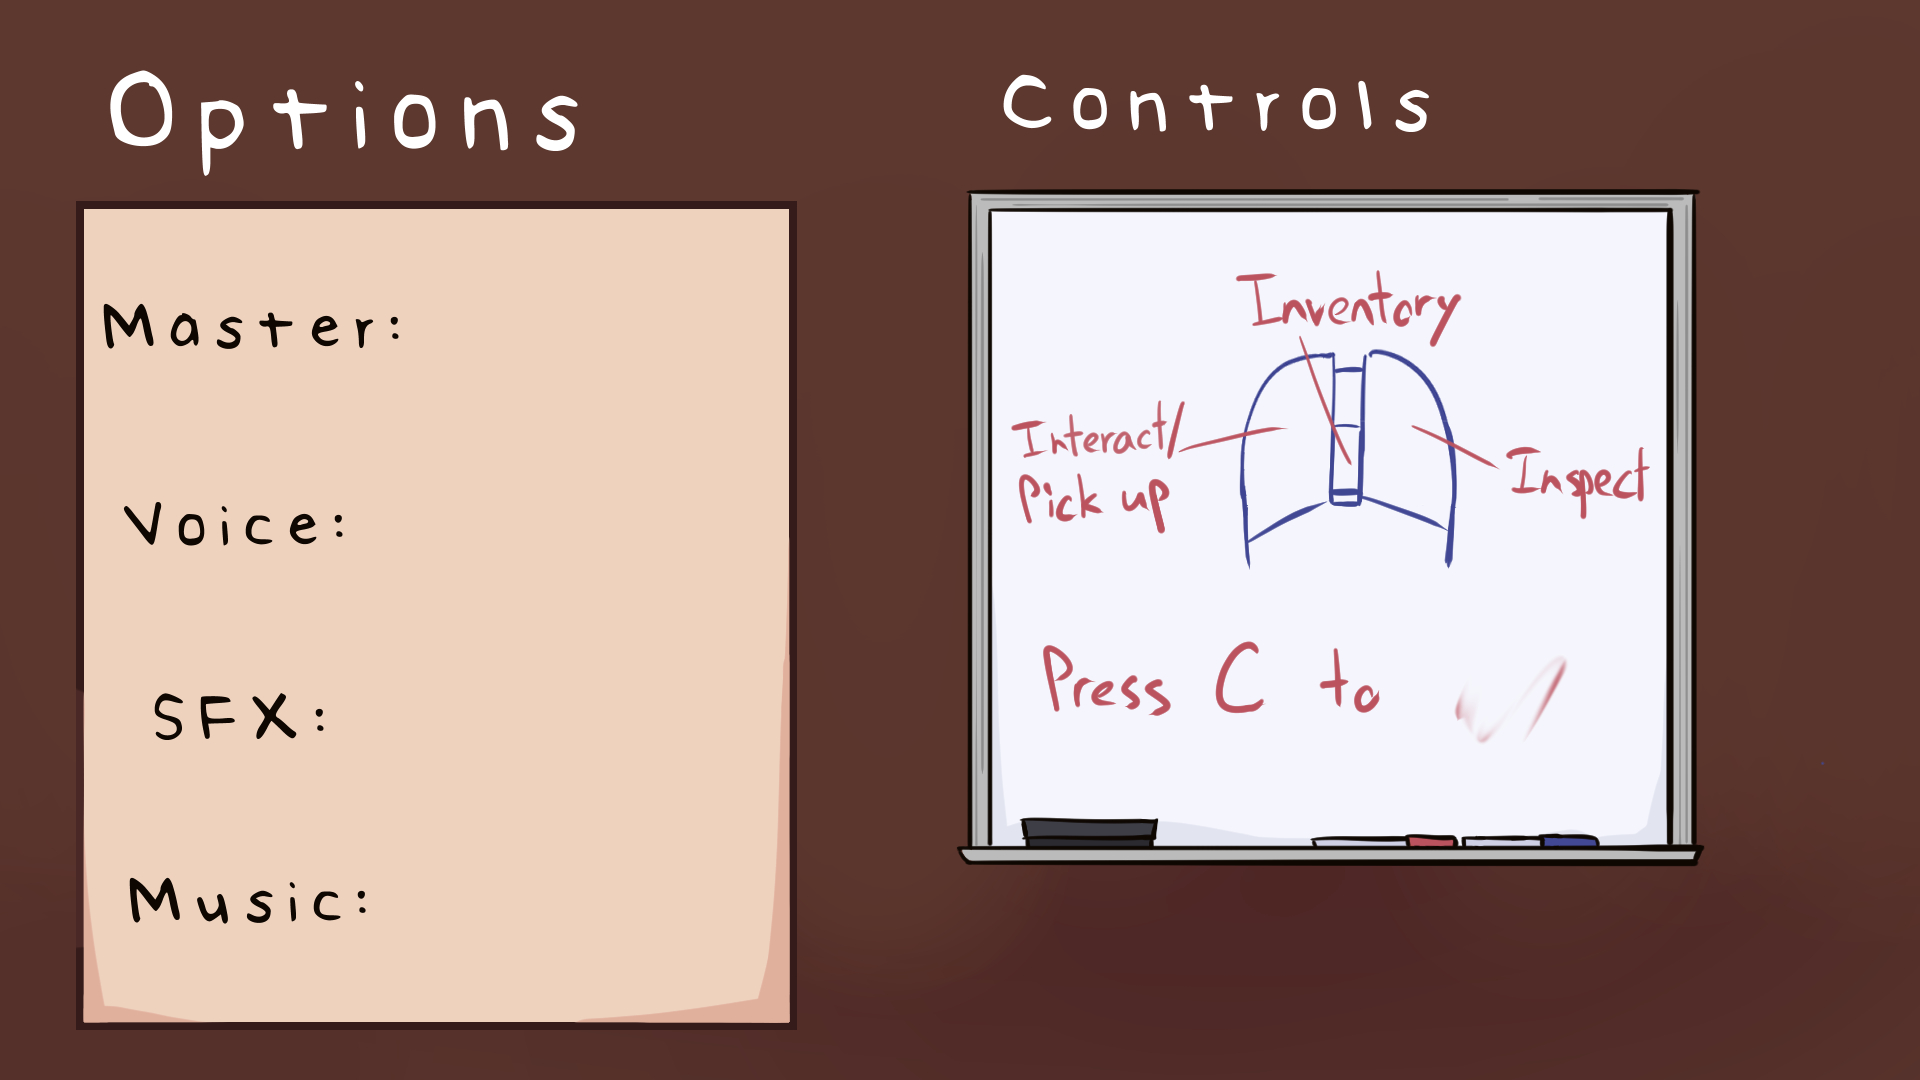 Options
Master:
Voice:
SFX:
Music:
Controls
Inventory
Interact/
Pick up
Inspect
Press C to